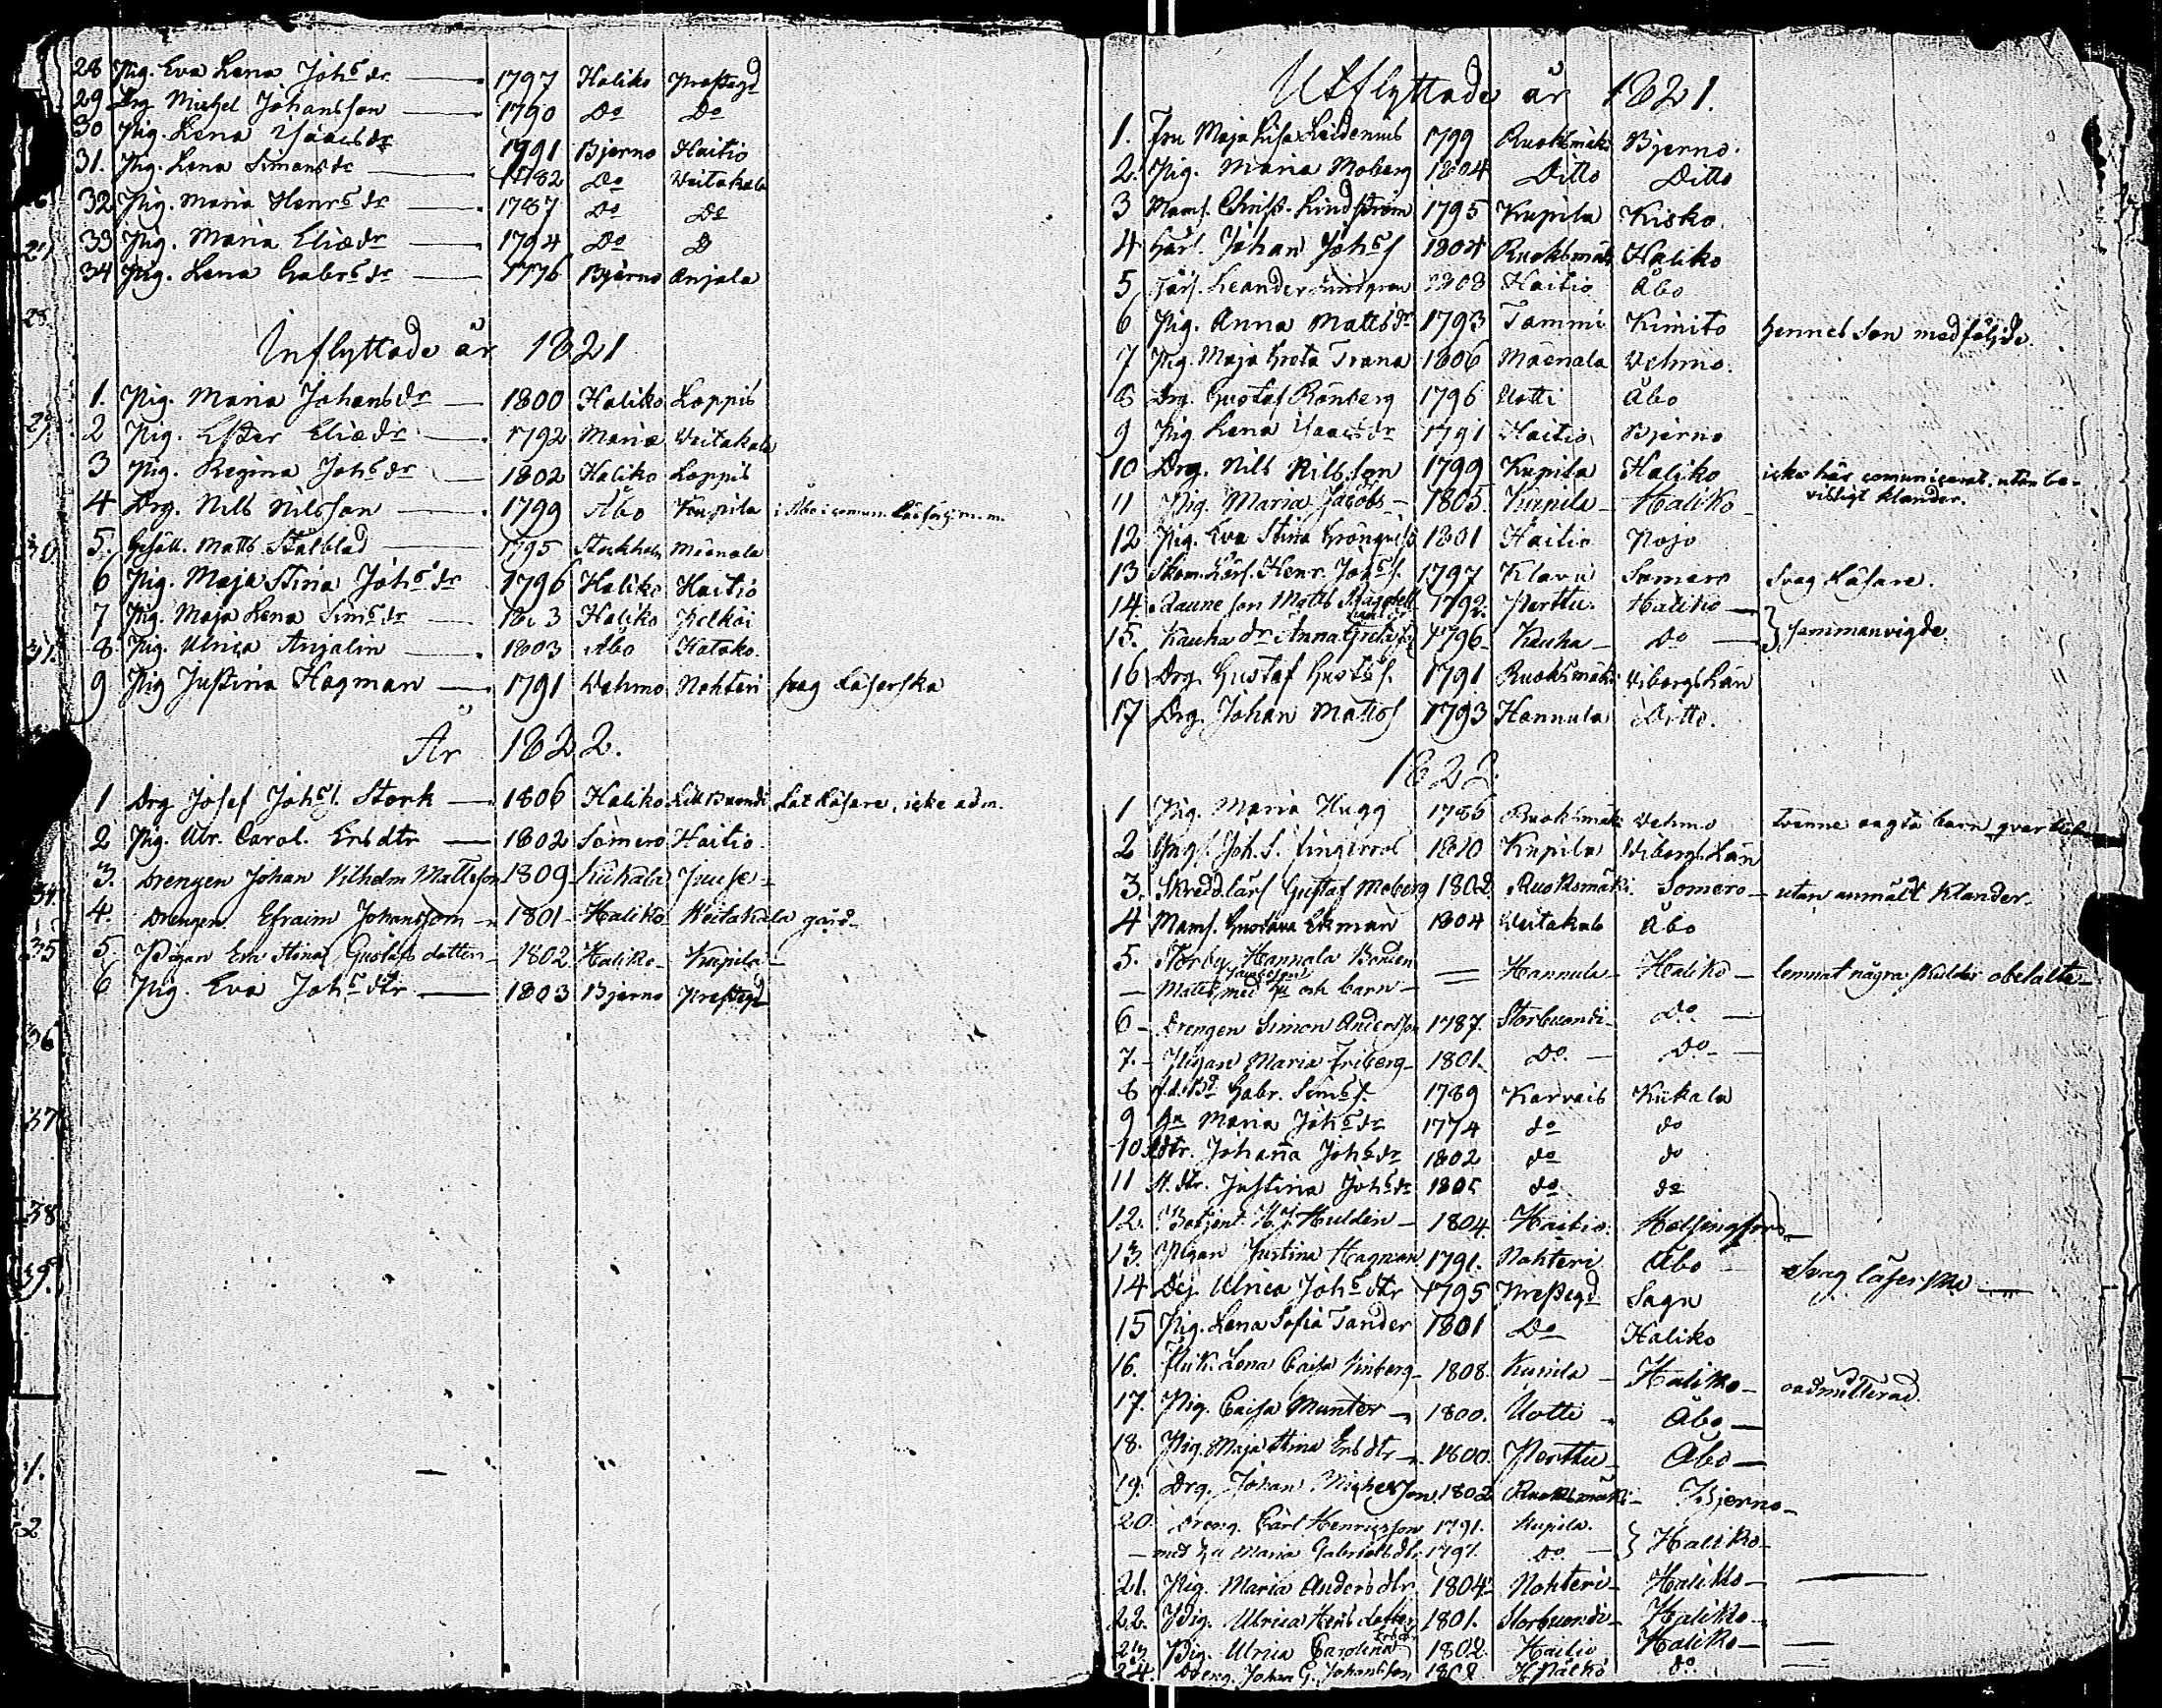 28 Pig. Eva Lena Johsdr 1797 Haliko Prestgd
29 Drg Michel Johansson 1790 Do Do
30 Pig. Lena Isaacsdr 1791 Bjerno Haitio
31. Pig. Lena Simonsdr 1782 Do Veitakala
32 Pig. Maria Henrsdr 1787 Do Do
33 Pig. Maria Eliædr 1794 Do D
34 Pig. Lena Gabrsdr 1776 Bjerno Anjala
Inflyttade år 1821
1. Pig. Maria Johansdr 1800 Haliko Loppis
2 Pig. Ester Eliædr 1792 Mariæ Veitakala
3 Pig. Regina Johsdr 1802 Haliko Loppis
4 Drg. Nils Nilsson 1799 Åbo Kupila
5. Gesäll. Matts Stålblad 1795 Stockholm Määnala
6 Pig. Maja Stina Johsdr 1796 Haliko Haitio
7 Pig. Maja Lena Simsdr Haliko
8. Pig. Ulrica Anjalin 1803 Åbo Kotako
9 Pig Justina Hagman 1791 Vehmo Nohteri svag läserska
År 1822.
1 Drg Josef Johs. Stork 1806 Haliko lat läsare, icke adm.
2 Pig. Ulr. Carol. Ersdtr 1802 Somero Haitio
3. Drengen Johan Vilhelm Mattsson 1809 Kiikala
4. Drengen Efraim Johansson 1801 Haliko Veitakala gård
5. Pigan Eva Stina Gustafsdotter 1802 Haliko Kupila
6 Pig. Eva Johsdtr 1803 Bjerno Prestgd
Utflyttade år 1821.
1. Fru Maja Lisa Leidenius 1799 Ruoksmäki Bjerno.
2. Pig. Maria Moberg 1804 Ditto Ditto
3 Mams. Christ. Lindström 1795 Kupila Kisko.
4 Johan Johss 1804 Ruoksmäki Haliko
5 Leander Lindgren 1808 Haitio Åbo
6 Pig. Anna Mattsdr 1793 Tammi Kimito hennes son medföljde.
7 Pig. Maja Greta Trana 1806 Määnala Vehmo.
8 Drg. Gustaf Rönberg 1796 Uotti Åbo
9 Pig Lena Isaacsdr 1791 Haitio Bjerno
10 Drg. Nils Nilsson 1799 Kupila Haliko icke här comunicerat, utan be-
visligt klander.
11 Pig. Maria Jacobs 1805. Kupila Haliko
12 Pig. Eva Stina Grönqvist 1801 Haitio Pojo
13 Skom. Lärl. Henr. Johss. 1797 Klavu Somero Svag läsare.
14. Matts 1792. Perttu. Haliko
15. Kauha dr. Anna Greta 1796 Kauha Do } sammanvigde
16 Drg. Gustaf Gustss. 1791 Ruoksmäki Viborgs Län
17 Drg. Johan Mattss 1793 Hannula Ditto.
1822.
1 Pig. Maria Hugg 1786 Ruoksmäki Vehmo tvenne oägta barn
2 Joh. S. Fingerroos 1820 Kupila Viborgs Län
3. Skreddlärl Gustaf Moberg 1802 Ruoksmäki Somero utan anmält klander.
4 Mams. Gustava Ekman 1804 Veitakala Åbo
5. Storby Hannula Bonden
Matts med hu och barn Hannula Haliko lemnat några skulder obetalte
6 Drengen Simon Andersson 1787. Storbuondi Do
7. Pigan Maria Friberg 1801. Do. Do
8 Gabr. Simss. 1789 Karvais Kiikala
9 Hu Maria Johsdr 1774 do do
10 dtr. Johana Johsdr 1802 do do
11 dtr. Justina Johsdr do do
12. Betjent Hulden 1804. Haitio. Helsingfors
13. Pigan Justina Hagman 1791. Nohteri Åbo Svag läserska
14 Dej. Ulrica Johsdtr 1795 Prestgd Sagu
15 Pig. Lena Sofia Tander 1801 Do Haliko
16. Flick. Lena Caisa 1808. Haliko oadmitterad.
17. Pig. Caisa Munter 1800. Uotti Åbo
18. Pig. Maja Stina Ersdtr 1800. Perttu Åbo
19. Drg. Johan Michelsson 1802 Ruoksmäki Bjerno
20. Dreng. Carl Henricsson 1791. Kupila. } Haliko
med hu Maria Gabrielsdtr 1791. Do.
21. Pig. Maria Andersdtr 1804. Nohteri Haliko
22. Pig. Ulrica Hensdotter 1801. Storbuondi Haliko
23. Pig. Ulrica Carolina Ersdr 1802. Haitio Haliko
24. Dreng. Johan G. Johansson do.